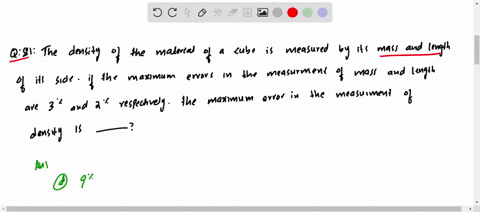 Q:81: The density of the material of a cube is measured by its mass and length
of its side. if the maximum errors in the measurment of mass and length
are 3% and 2% respectively. the maximum error in the measurment of
density is ____?
Ans
(d) 9%